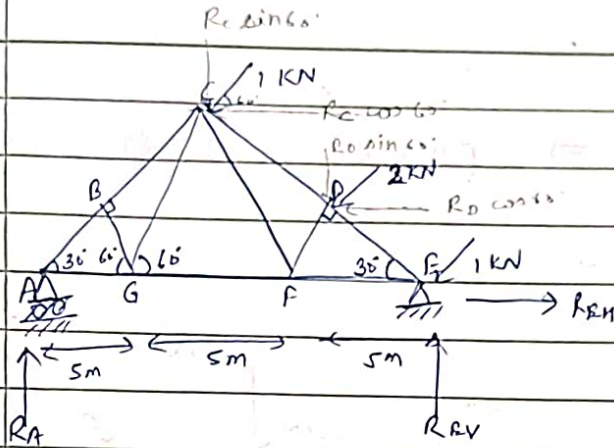 Rc sin60°
1 KN
C 60°
Rc cos 60°
RD sin 60°
2KN
B
D
RD cos 60°
30° 60° 60° 30° E 1 KN
A G F
REH
5m 5m 5m
RA REV